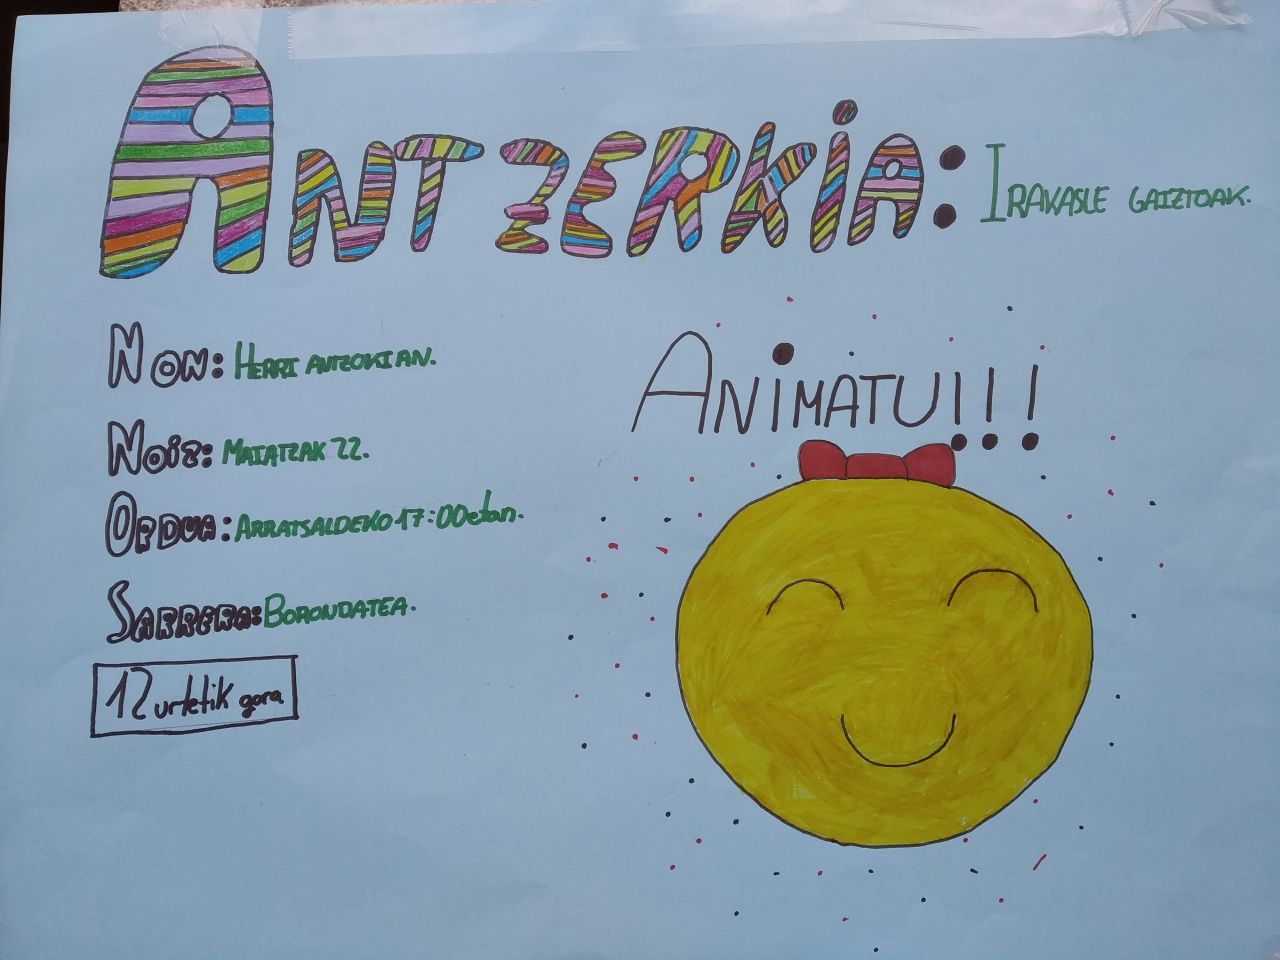 ANTZERKIA: IRAKASLE GAIZTOAK.
NON: HERRI ANTZOKIAN.
NOIZ: MAIATZAK 22.
ORDUA: ARRATSALDEKO 17:00etan.
SARRERA: BORONDATEA.
12 urtetik gora
ANIMATU!!!